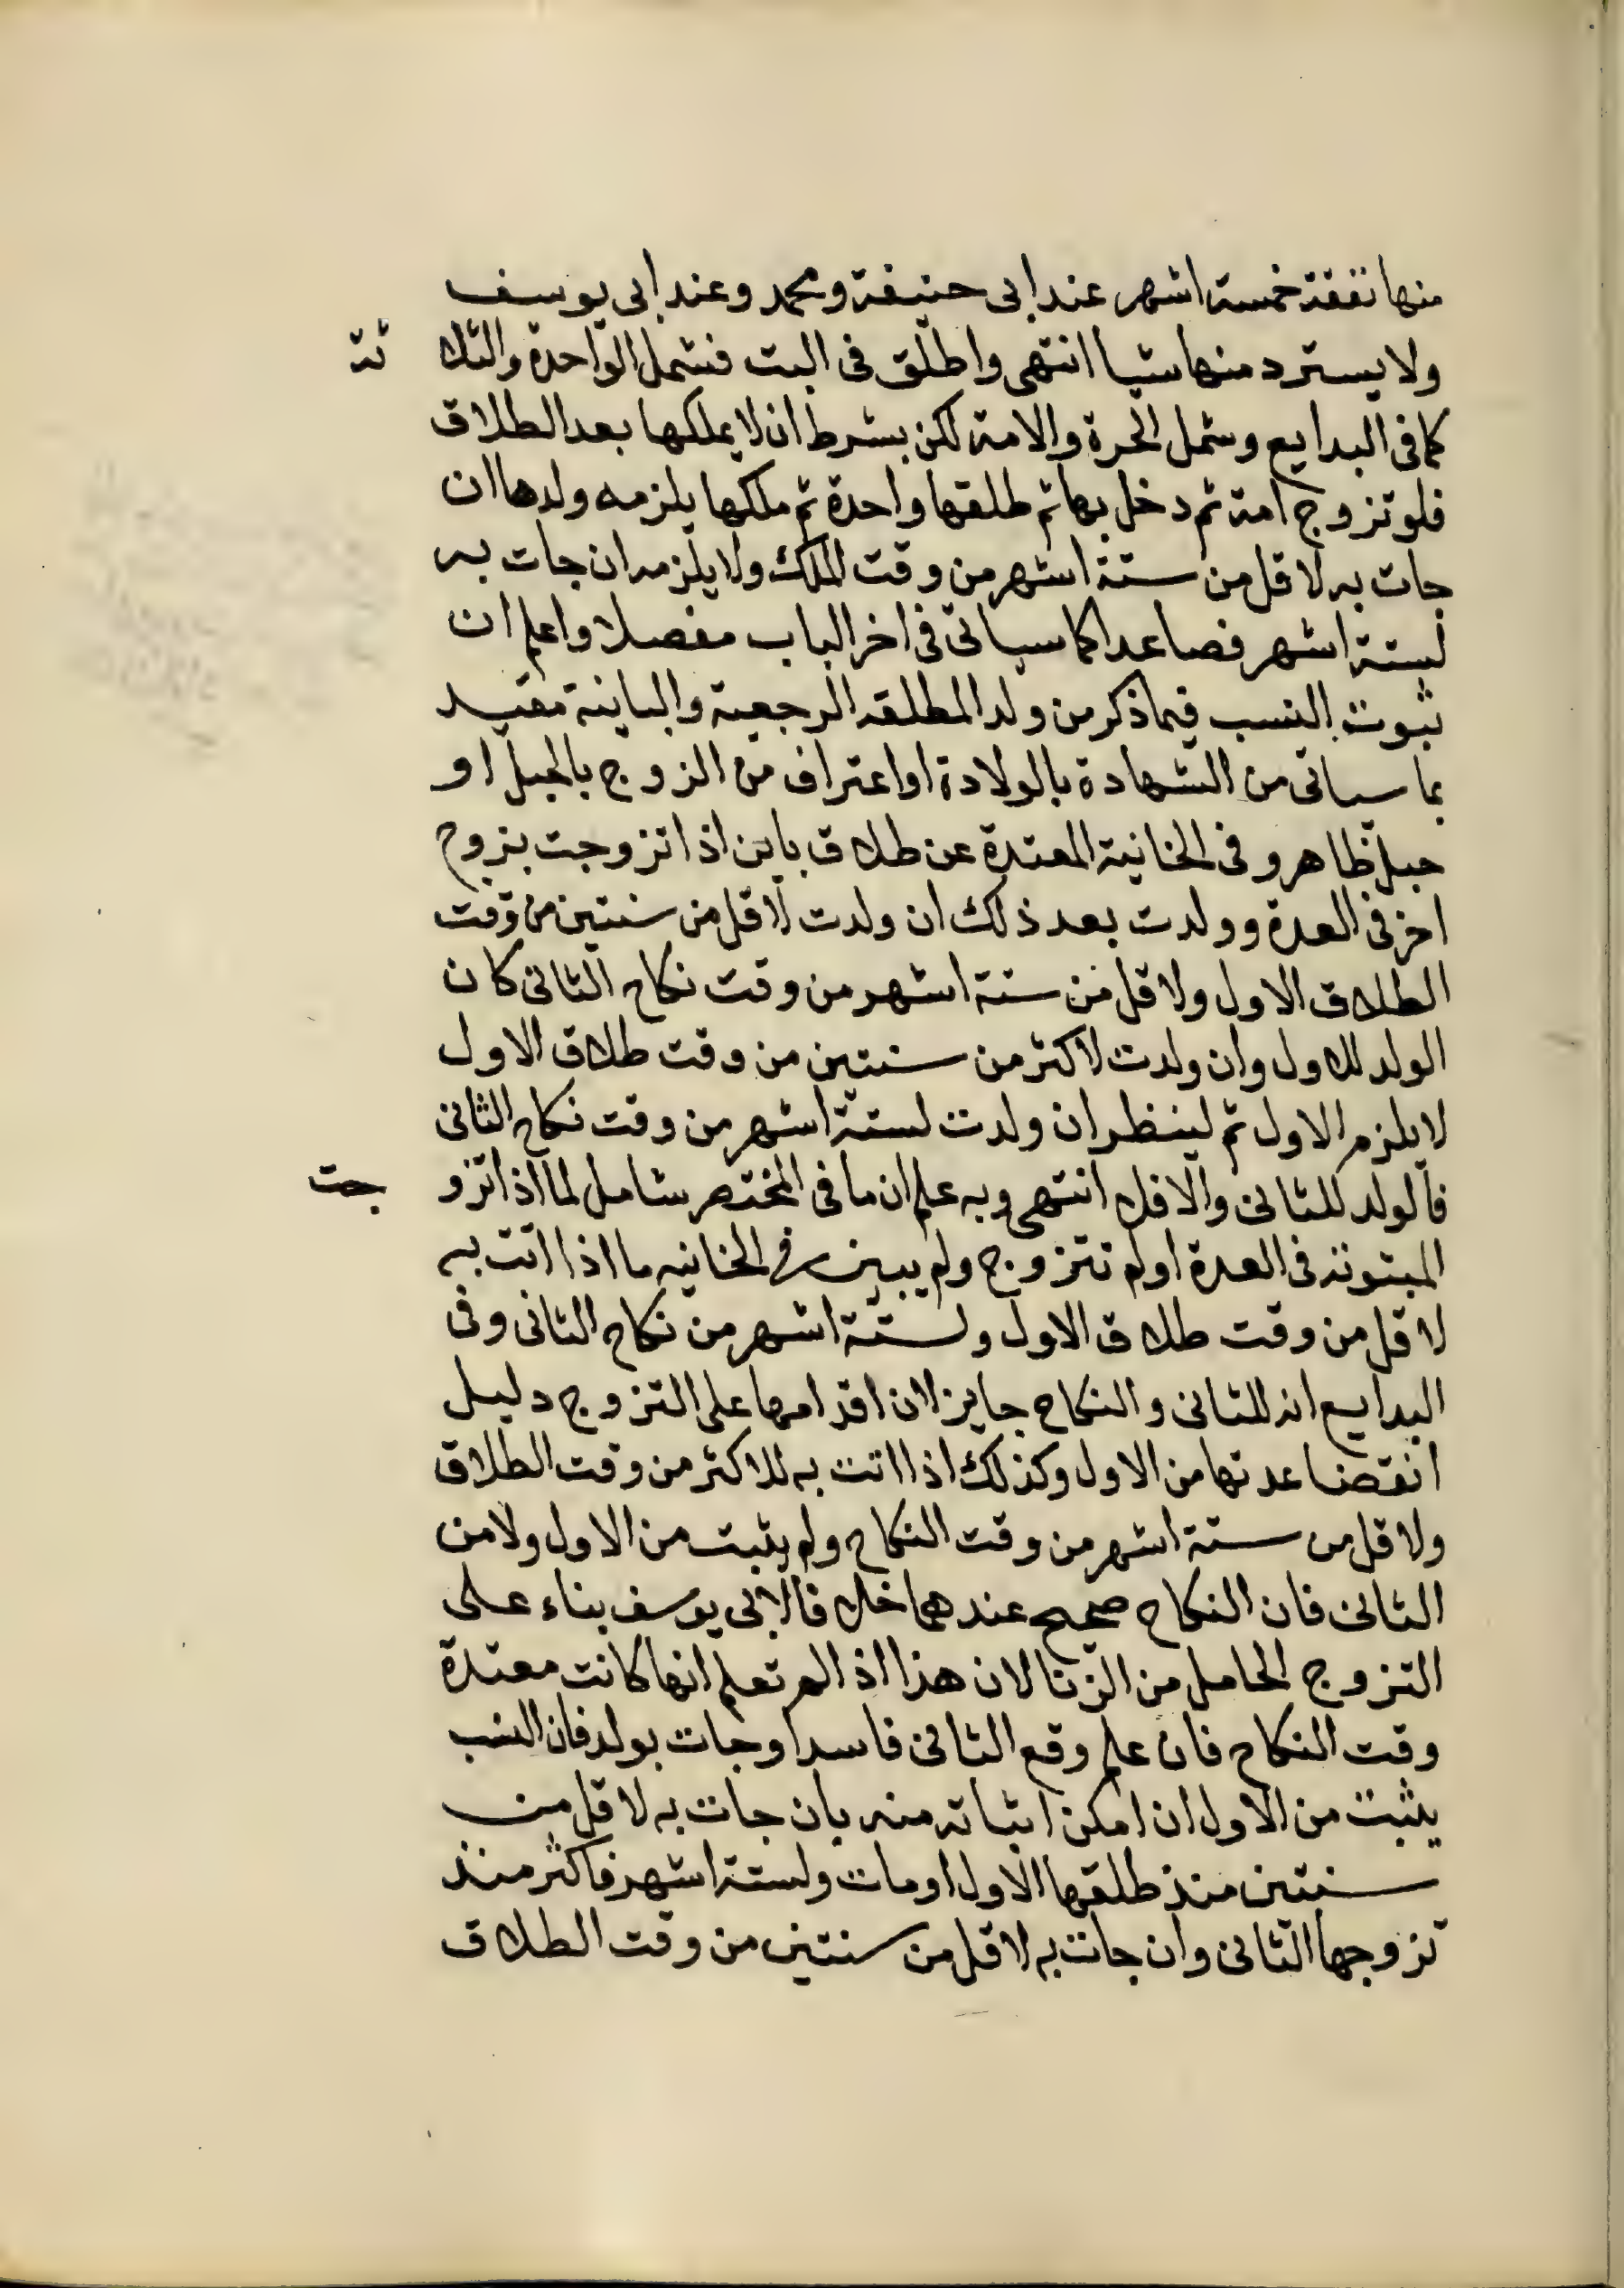 منها نفقة خمسة اشهر عند ابى حنيفة ومحمد وعند ابى يوسف
ولا يسترد منها شيا انتهى واطلق فى البت فشمل الواحدة والثلا ثة
كما فى البدايع وشمل الحرة والامة لكن بشرط ان لا يملكها بعد الطلاق
فلو تزوج امة ثم دخل بها ثم طلقها واحدة ثم ملكها يلزمه ولدها ان
جات به لاقل من ستة اشهر من وقت الملك ولا يلزمه ان جات به
لستة اشهر فصاعدا كما سياتى فى اخر الباب مفصلا واعلم ان
ثبوت النسب فيما ذكر من ولد المطلقة الرجعية والباينة مقيد
بما سياتى من الشهادة بالولادة او اعتراف من الزوج بالحبل او
حبل ظاهر وفى الخانية المعتدة عن طلاق باين اذا تزوجت بزوج
اخر فى العدة وولدت بعد ذلك ان ولدت لاقل من سنتين من وقت
الطلاق الاول ولاقل من ستة اشهر من وقت نكاح الثانى كان
الولد للاول وان ولدت لاكثر من سنتين من وقت طلاق الاول
لا يلزم الاول ثم لينظر ان ولدت لستة اشهر من وقت نكاح الثانى
فالولد للثانى والا فلا انتهى وبه علم ان ما فى المختصر شامل لما اذا تزو جت
المبتوتة فى العدة او لم تتزوج ولم يبين فى الخانيه ما اذا اتت به
لاقل من وقت طلاق الاول ولستة اشهر من نكاح الثانى وفى
البدايع انه للثانى والنكاح جايز لان اقدامها على التزوج دليل
انقضا عدتها من الاول وكذلك اذا اتت به للاكثر من وقت الطلاق
ولاقل من ستة اشهر من وقت النكاح ولم يثبت من الاول ولا من
الثانى فان النكاح صحيح عندهما خلافا لابى يوسف بناء على
التزوج الحامل من الزنا لان هذا اذا لم تعلم انها كانت معتدة
وقت النكاح فان علم وقع الثانى فاسدا وجات بولد فان النسب
يثبت من الاول ان امكن اثباته منه بان جات به لاقل من
سنتين منذ طلقها الاول او مات ولستة اشهر فاكثر منذ
تزوجها الثانى وان جات به لاقل من سنتين من وقت الطلاق